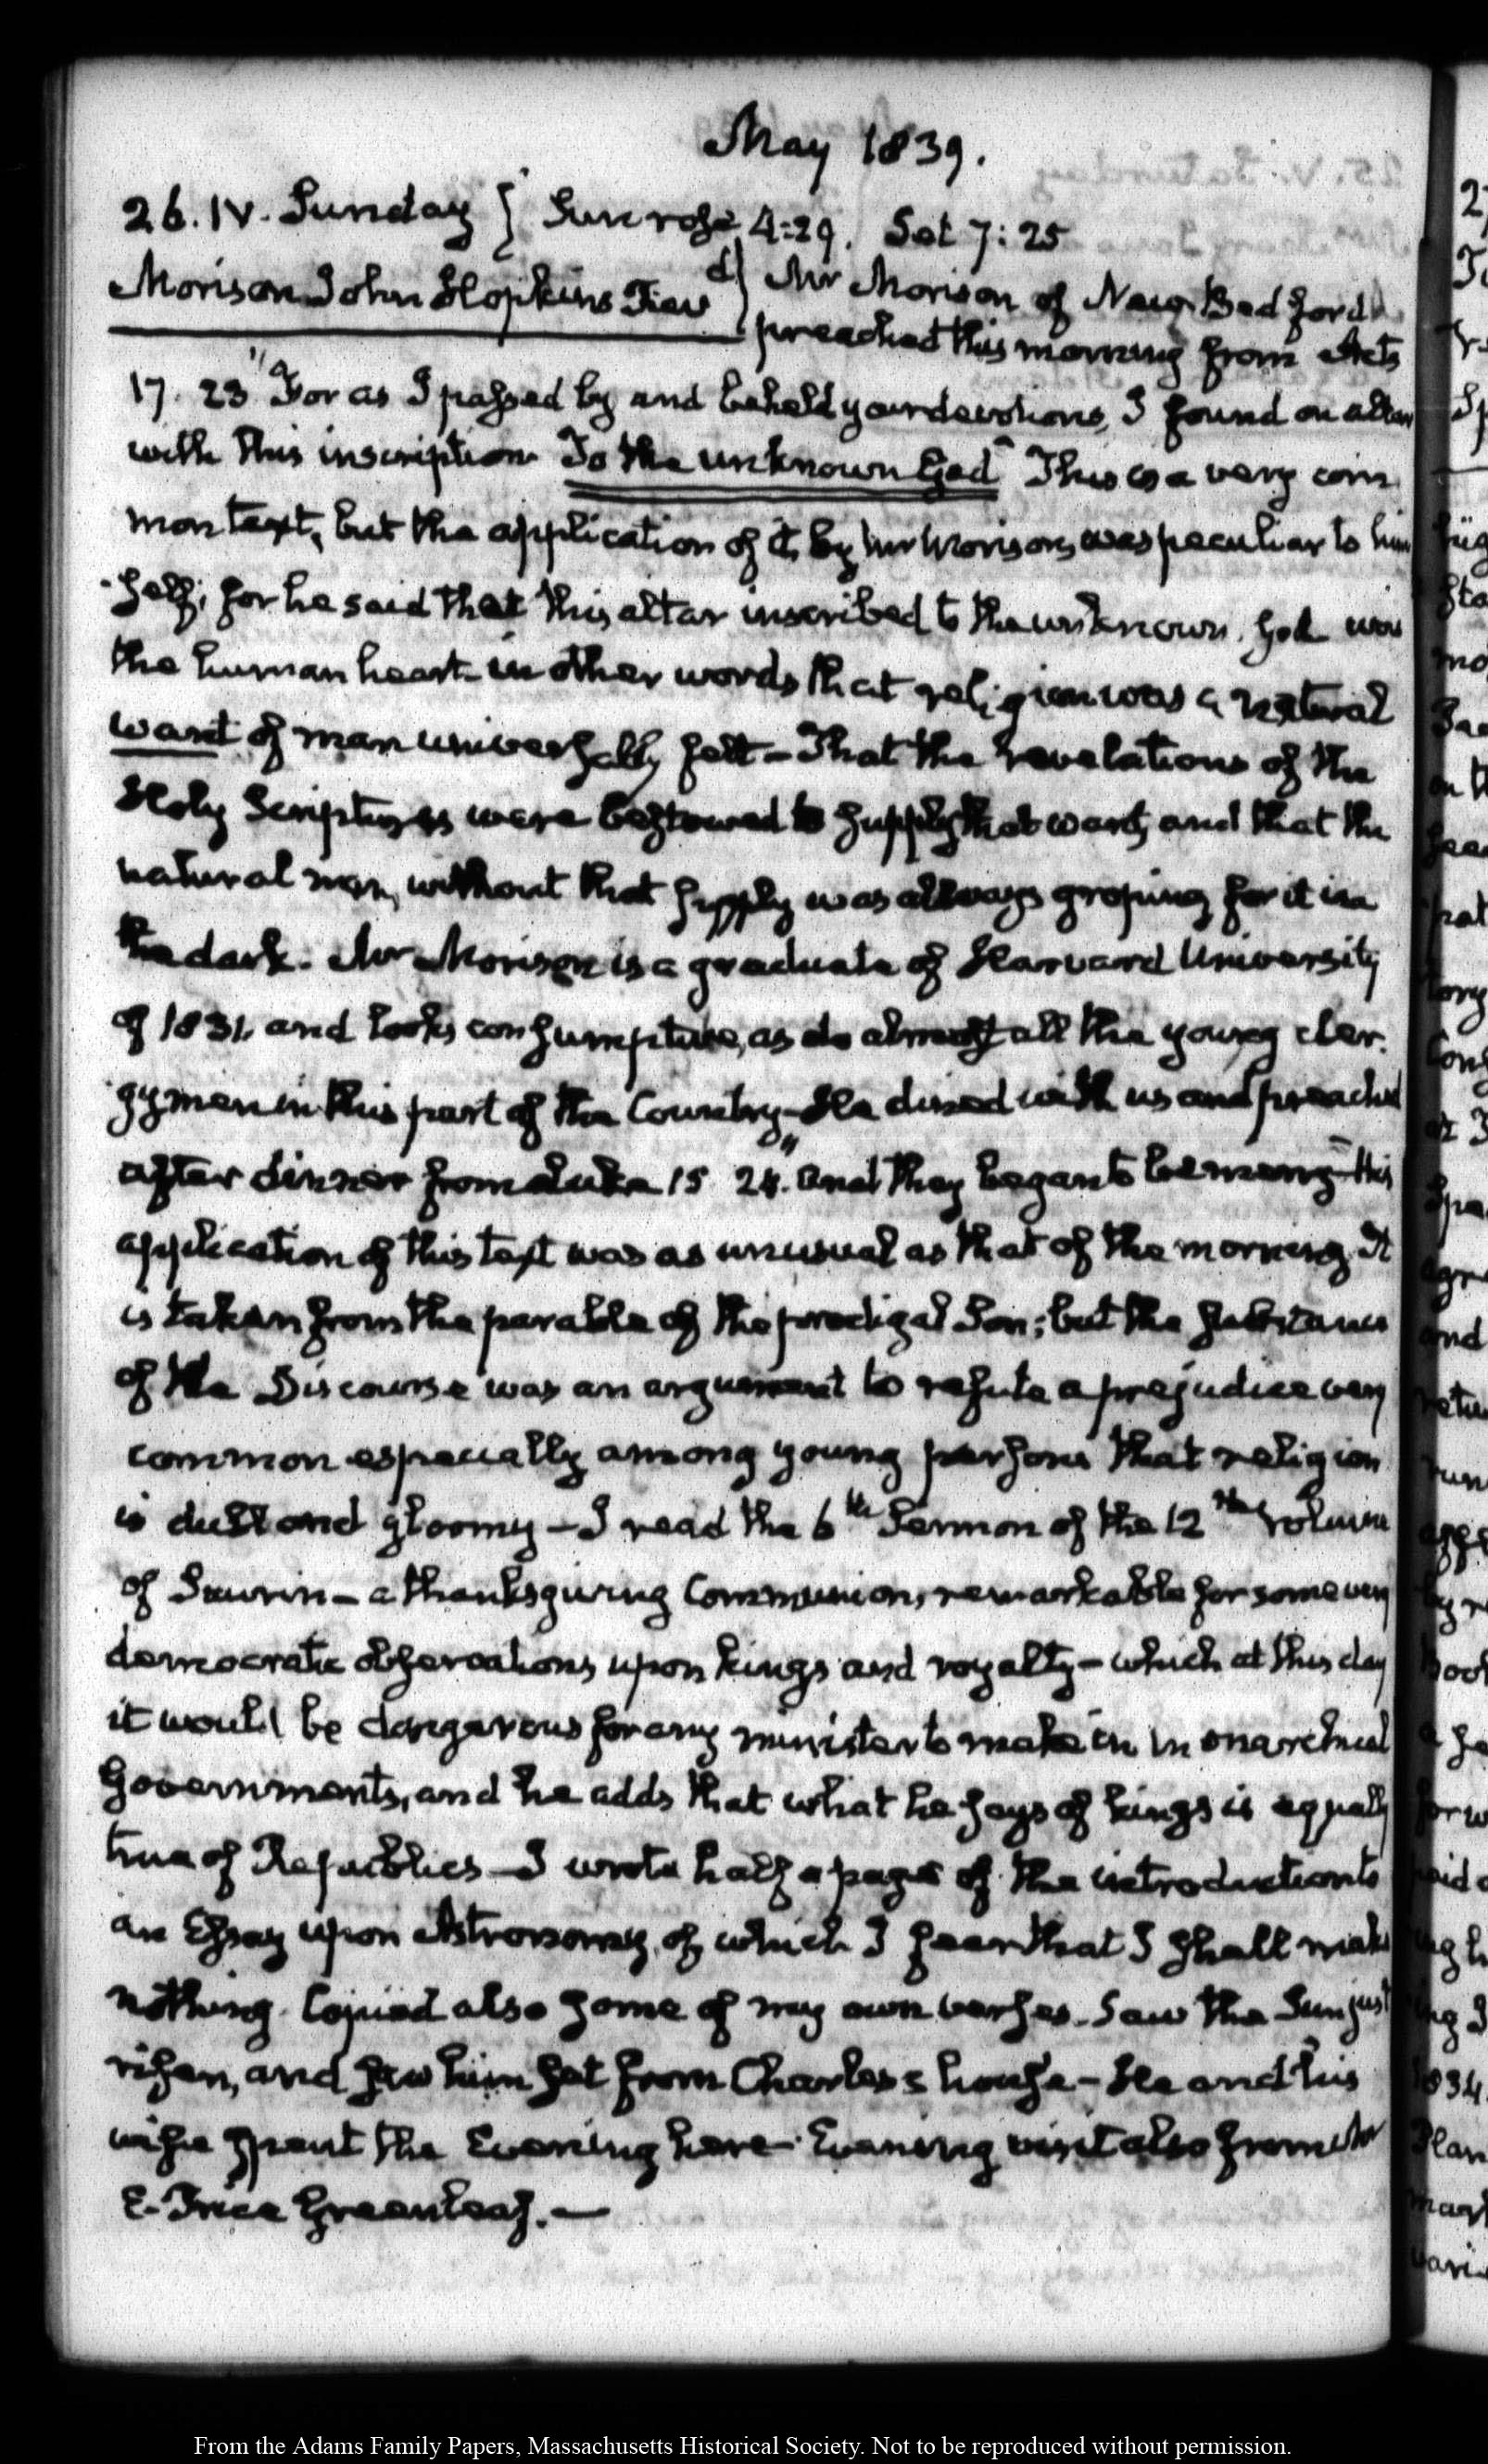 May 1839.
26. IV. Sunday } Sun rose 4:29. Set 7:25
Morison John Hopkins
Mr Morison of New Bedford
preached this morning from Acts
17. 23 "For as I passed by and beheld your devotions, I found an altar
with this inscription To the unknown God" This is a very com
mon text, but the application of it, by Mr Morison, was peculiar to him
self; for he said that this altar inscribed to the unknown God was
the human heart in other words that religion was a natural
want of man universally felt – That the revelations of the
Holy Scriptures were bestowed to supply that want, and that the
natural man, without that supply was always groping for it in
the dark. Mr Morison is a graduate of Harvard University
of 1831, and looks consumptive, as do almost all the young cler
gymen in this part of the Country – He dined with us and preached
after dinner from Luke 15 24. "And they began to be merry" His
application of this text was as unusual as that of the morning. It
is taken from the parable of the prodigal Son; but the substance
of the Discourse was an argument to refute a prejudice very
common especially among young persons that religion
is dull and gloomy – I read the 6th Sermon of the 12th volume
of Saurin – a thanksgiving Communion, remarkable for some very
democratic observations upon kings and royalty – which at this day
it would be dangerous for any minister to make in monarchical
Governments, and he adds that what he says of kings is equally
true of Republics – I wrote half a page of the introduction to
an Essay upon Astronomy, of which I fear that I shall make
nothing. Copied also some of my own verses. Saw the Sun just
risen, and saw him set from Charles's house – He and his
wife spent the Evening here. Evening visit also from Mr
E. Price Greenleaf. —
From the Adams Family Papers, Massachusetts Historical Society. Not to be reproduced without permission.